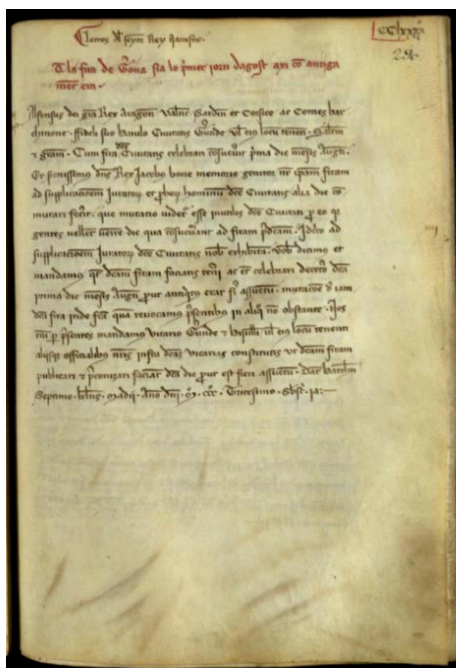 Letres del senyor Rey Namfos.
CClxxx
28
La fira de Gerona sia lo primer jorn dagost axi com antiga
ment era.
Alfonsus dei gratia Rex Aragon Valencie Sardinie et Corsice ac Comes bar
chinone. fideli suo baiulo Civitatis Gerunde vel eius locum tenenti. Salutem
et gratiam. Cum fira Civitatis celebrari consuevit prima die mensis Augusti.
Et serenissimus dominus Rex Jacobus bone memorie genitor noster ipsam firam
ad supplicacionem Juratorum et proborum hominum dicte Civitatis alia die com
mutari fecerit. que mutacio videtur esse inutilis dicte Civitati pro eo quia
gentes nollent venire die qua consueverant ad firam predictam. Ideo ad
supplicacionem Juratorum dicte Civitatis nobis exhibitam. Vobis dicimus et
mandamus quatenus dictam firam faciatis teneri ac et celebrari decetero dicta
prima die mensis Augusti prout antiquitus erat fieri assuetum. mutacione iam
dicta fira inde facta quam revocamus presentibus in aliquo non obstante. Nos
enim per presentes mandamus vicario Gerunde et Bisulluni vel eius locum tenenti
aliisque officialibus nostris infra dictas vicarias constitutis ut dictam firam
publicari et preconizari faciant dicta die prout est fieri assuetum. Dat Barchinone
Septimo kalendas madii. Anno domini M CCC Tricesimo.